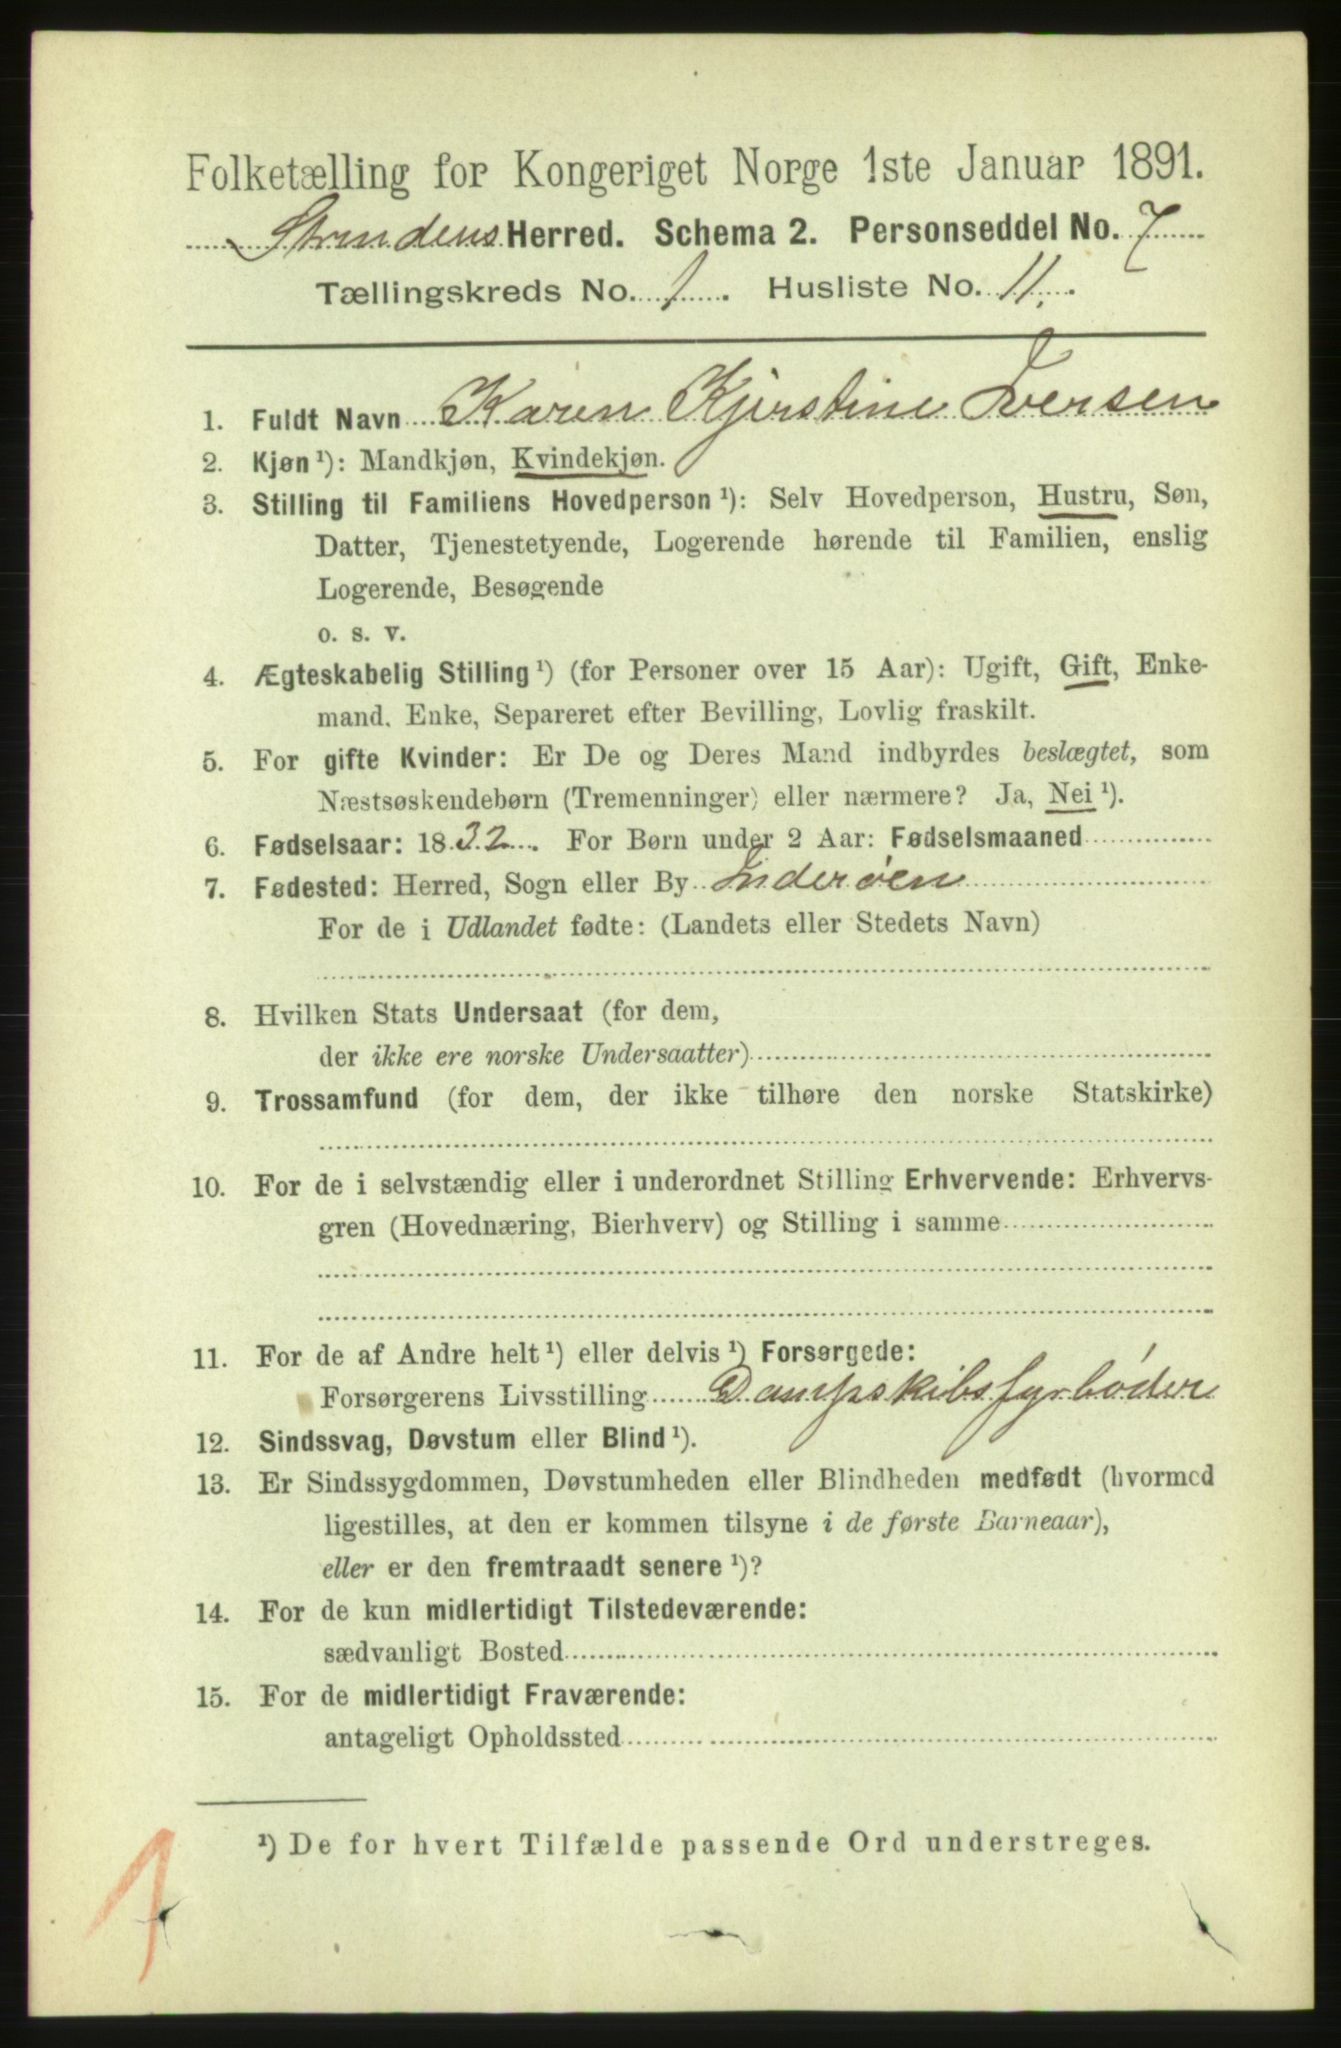 Folketælling for Kongeriget Norge 1ste Januar 1891.
Strindens Herred. Schema 2. Personseddel No. 7
Tællingskreds No. 1. Husliste No. 11.
1. Fuldt Navn Karen Kjerstine Iversen
2. Kjøn ¹): Mandkjøn, Kvindekjøn.
3. Stilling til Familiens Hovedperson ¹): Selv Hovedperson, Hustru, Søn,
Datter, Tjenestetyende, Logerende hørende til Familien, enslig
Logerende, Besøgende
o. s. v.
4. Ægteskabelig Stilling ¹) (for Personer over 15 Aar): Ugift, Gift, Enke-
mand, Enke, Separeret efter Bevilling, Lovlig fraskilt.
5. For gifte Kvinder: Er De og Deres Mand indbyrdes beslægtet, som
Næstsøskendebørn (Tremenninger) eller nærmere? Ja, Nei ¹).
6. Fødselsaar: 1832. For Børn under 2 Aar: Fødselsmaaned
7. Fødested: Herred, Sogn eller By Inderøen
For de i Udlandet fødte: (Landets eller Stedets Navn)
8. Hvilken Stats Undersaat (for dem,
der ikke ere norske Undersaatter)
9. Trossamfund (for dem, der ikke tilhøre den norske Statskirke)
10. For de i selvstændig eller i underordnet Stilling Erhvervende: Erhvervs-
gren (Hovednæring, Bierhverv) og Stilling i samme
11. For de af Andre helt ¹) eller delvis ¹) Forsørgede:
Forsørgerens Livsstilling Dampskibsfyrbøder
12. Sindssvag, Døvstum eller Blind ¹).
13. Er Sindssygdommen, Døvstumheden eller Blindheden medfødt (hvormed
ligestilles, at den er kommen tilsyne i de første Barneaar),
eller er den fremtraadt senere ¹)?
14. For de kun midlertidigt Tilstedeværende:
sædvanligt Bosted
15. For de midlertidigt Fraværende:
antageligt Opholdssted
¹) De for hvert Tilfælde passende Ord understreges.
1